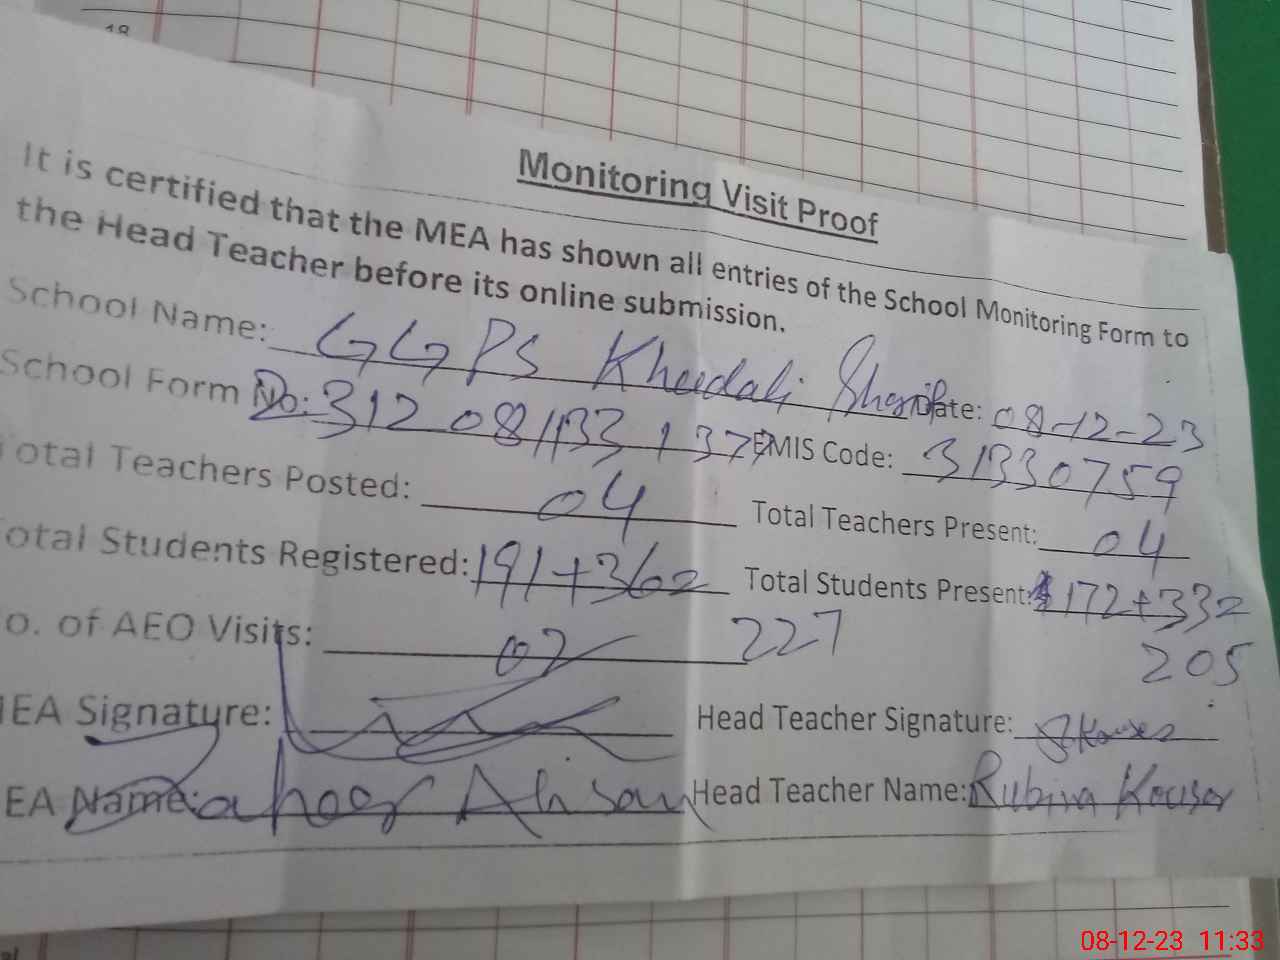 18
Monitoring Visit Proof
It is certified that the MEA has shown all entries of the School Monitoring Form to
the Head Teacher before its online submission.
School Name: GGPS Kheedali Sharif Date: 08-12-23
School Form No: 31208113313 EMIS Code: 31330759
Total Teachers Posted: 04 Total Teachers Present: 04
Total Students Registered: 191+362 Total Students Present: 172+332
227 205
o. of AEO Visits: 02
MEA Signature: Head Teacher Signature: RKouser
EA Name: Zahoor Ahson Head Teacher Name: Rubina Kouser
08-12-23 11:33